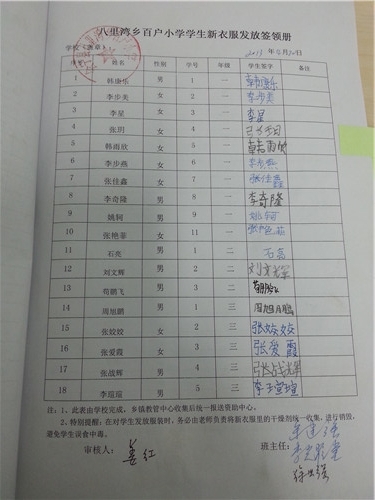 八里湾乡百户小学学生新衣服发放签领册
学校（盖章）： 2017年
序号 姓名 性别 学号 年级 学生签字 备注
1 韩康乐 男 1 一 韩康乐
2 李步美 女 2 一 李步美
3 李星 男 3 一 李星
4 张玥 女 4 一 张玥
5 韩雨欣 女 5 一 韩雨欣
6 李步燕 女 6 一 李步燕
7 张佳鑫 女 7 一 张佳鑫
8 李奇隆 男 8 一 李奇隆
9 姚轲 男 9 一 姚轲
10 张艳菲 女 11 一 张艳菲
11 石亮 男 1 二 石亮
12 刘文辉 男 2 二 刘文辉
13 荀鹏飞 男 3 二 荀鹏飞
14 周旭鹏 男 1 三 周旭鹏
15 张姣姣 女 2 三 张姣姣
16 张爱霞 女 3 三 张爱霞
17 张战辉 男 4 三 张战辉
18 李瑄瑄 男 5 三
注：1、此表由学校完成，乡镇教管中心收集后统一报送资助中心。
2、特别提醒：在对学生发放服装时，务必由老师负责将新衣服里的干燥剂统一收集，进行销毁，
避免学生误食中毒。
审核人： 姜红 班主任：